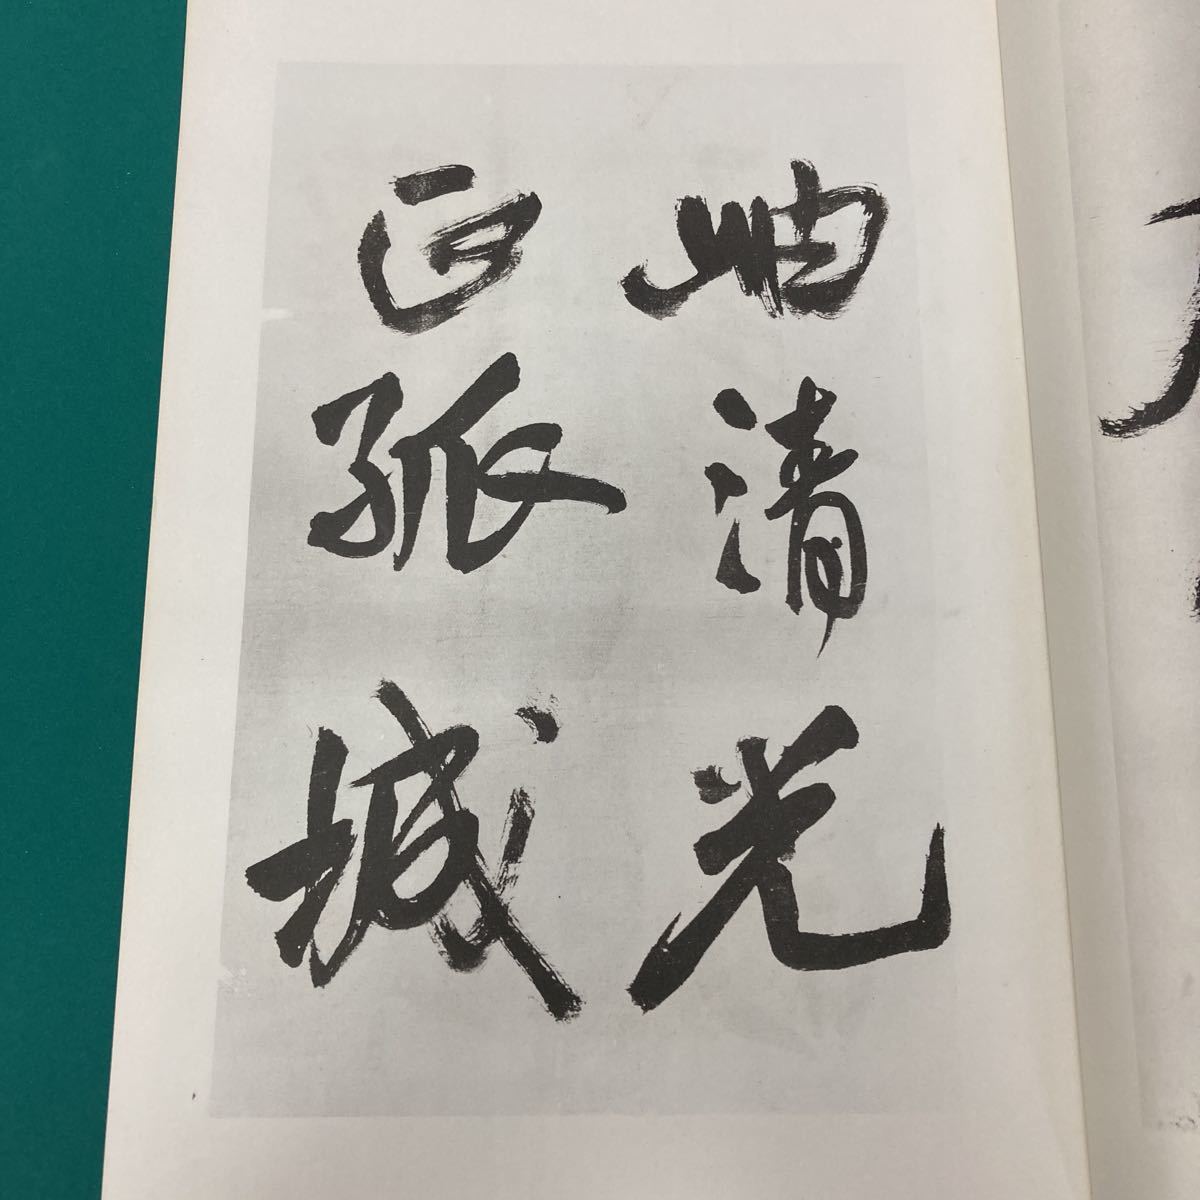 岫清光
正孤城